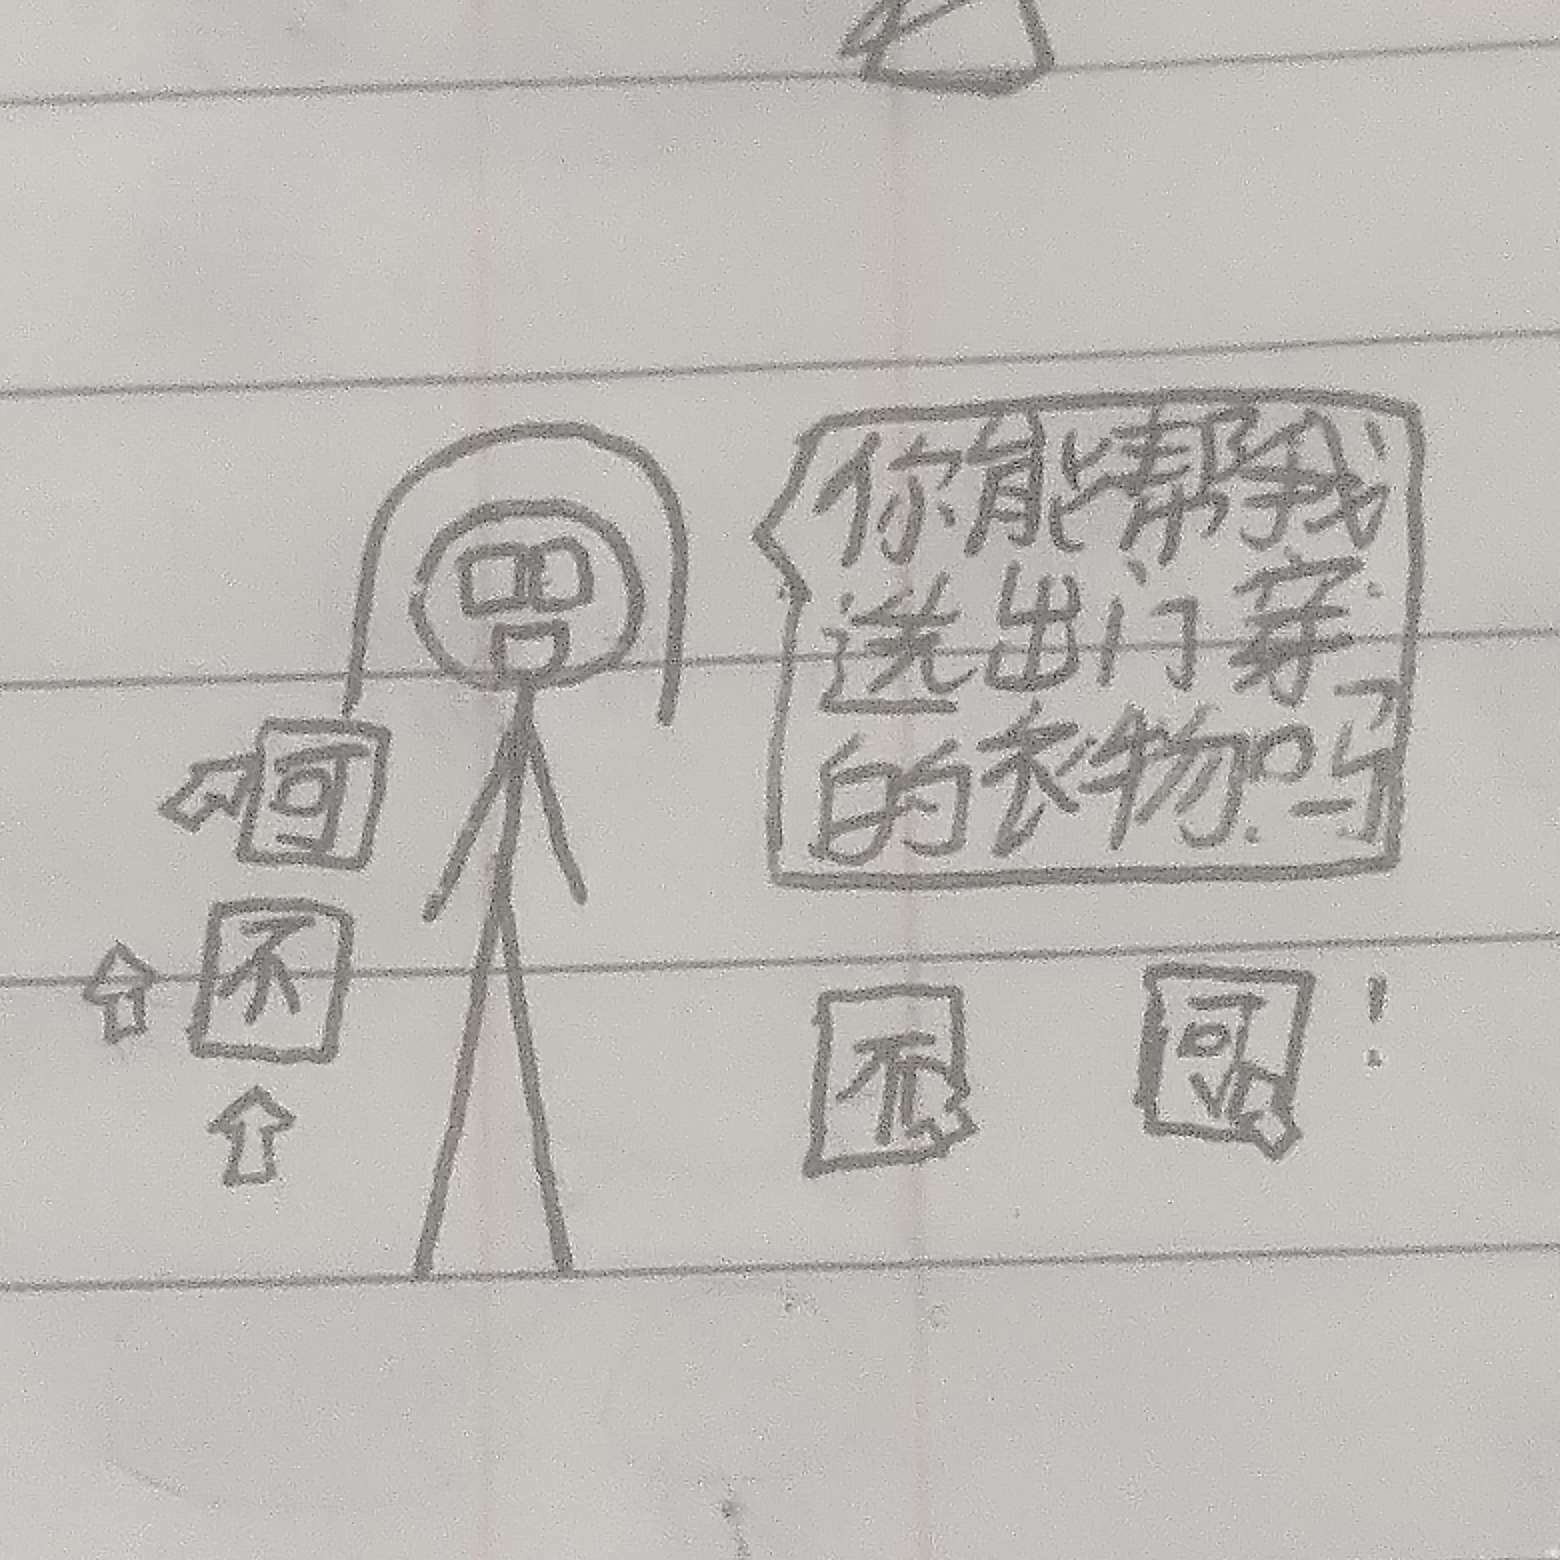 你能帮我
选出门穿
的衣物吗
可
不
不 可!